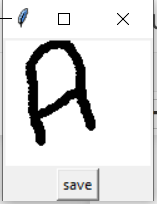 A
save